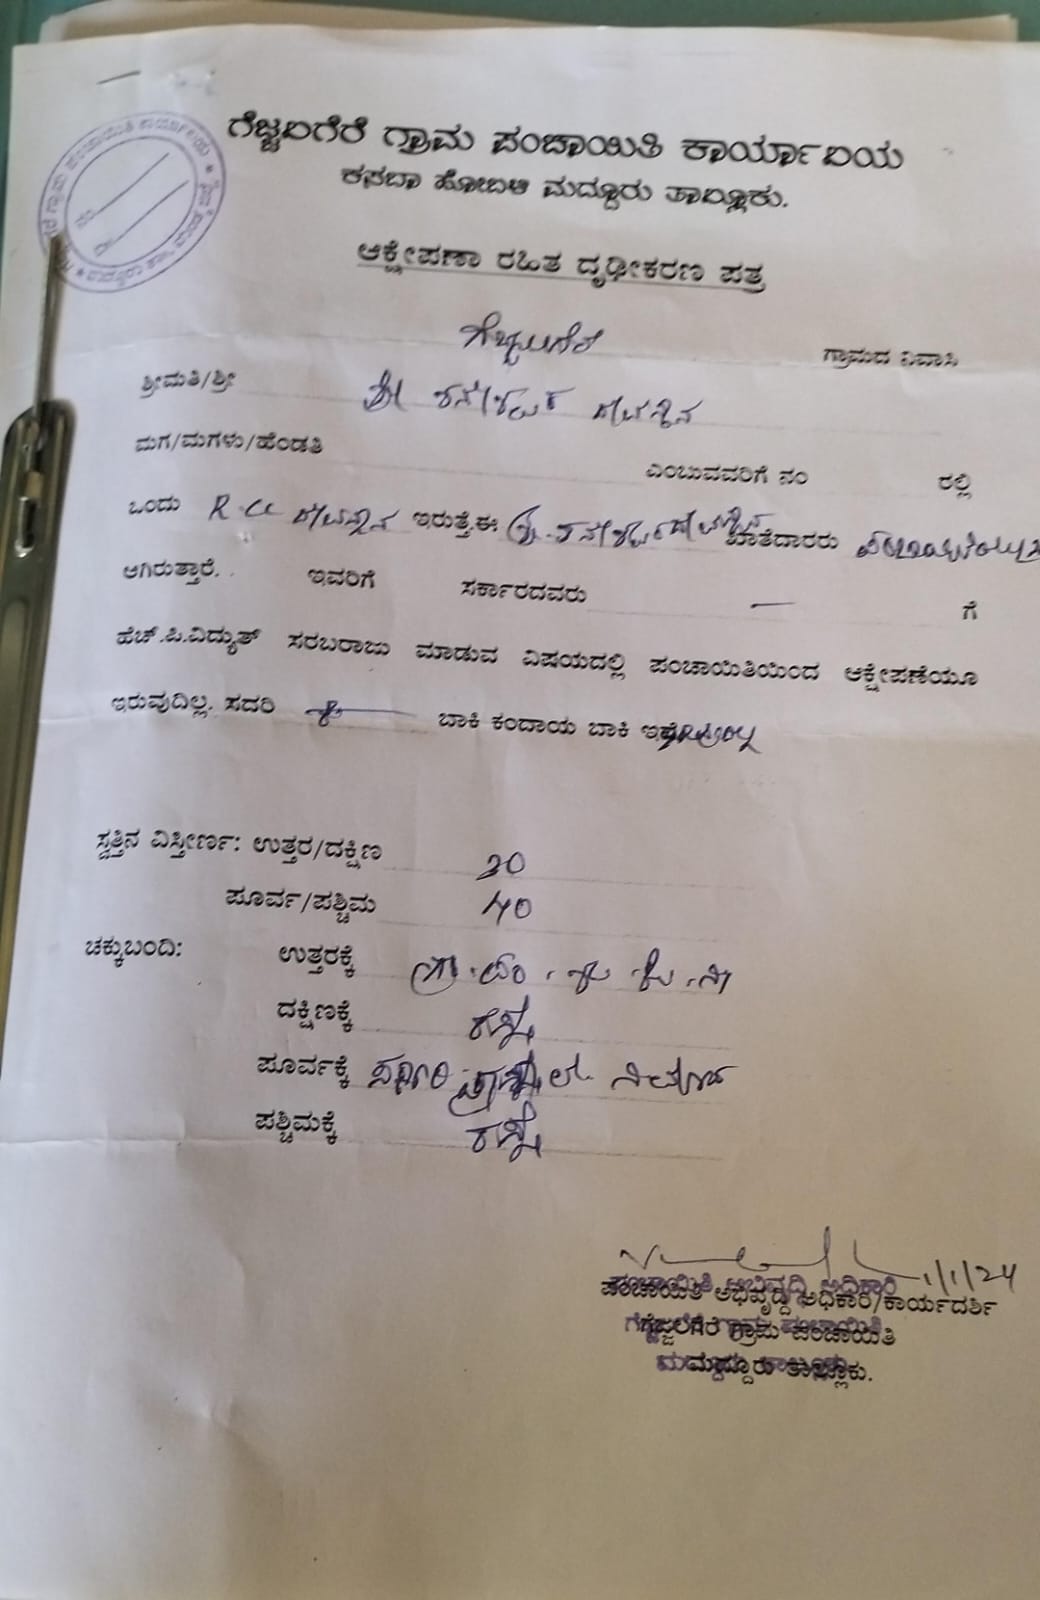 ಗೆಜ್ಜಲಗೆರೆ ಗ್ರಾಮ ಪಂಚಾಯಿತಿ ಕಾರ್ಯಾಲಯ
ಕಸಬಾ ಹೋಬಳಿ ಮದ್ದೂರು ತಾಲ್ಲೂಕು.
ಆಕ್ಷೇಪಣಾ ರಹಿತ ದೃಢೀಕರಣ ಪತ್ರ
ಗೆಜ್ಜಲಗೆರೆ ಗ್ರಾಮದ ನಿವಾಸಿ
ಶ್ರೀಮತಿ/ಶ್ರೀ ಶ್ರೀ ಶನೇಶ್ವರ ದೇವಸ್ಥಾನ
ಮಗ/ಮಗಳು/ಹೆಂಡತಿ ಎಂಬುವವರಿಗೆ ನಂ ರಲ್ಲಿ
ಒಂದು R.CC ದೇವಸ್ಥಾನ ಇರುತ್ತೆ.ಈ ಶ್ರೀ.ಶನೇಶ್ವರ ದೇವಸ್ಥಾನ ಖಾತೆದಾರರು
ಆಗಿರುತ್ತಾರೆ. ಇವರಿಗೆ ಸರ್ಕಾರದವರು — ಗೆ
ಹೆಚ್.ಪಿ.ವಿದ್ಯುತ್ ಸರಬರಾಜು ಮಾಡುವ ವಿಷಯದಲ್ಲಿ ಪಂಚಾಯಿತಿಯಿಂದ ಆಕ್ಷೇಪಣೆಯೂ
ಇರುವುದಿಲ್ಲ. ಸದರಿ ಬಾಕಿ ಕಂದಾಯ ಬಾಕಿ
ಸ್ವತ್ತಿನ ವಿಸ್ತೀರ್ಣ: ಉತ್ತರ/ದಕ್ಷಿಣ 30
ಪೂರ್ವ/ಪಶ್ಚಿಮ 40
ಚಕ್ಕುಬಂದಿ: ಉತ್ತರಕ್ಕೆ
ದಕ್ಷಿಣಕ್ಕೆ ರಸ್ತೆ
ಪೂರ್ವಕ್ಕೆ
ಪಶ್ಚಿಮಕ್ಕೆ ರಸ್ತೆ
1/1/24
ಪಂಚಾಯಿತಿ ಅಭಿವೃದ್ಧಿ ಅಧಿಕಾರಿ/ಕಾರ್ಯದರ್ಶಿ
ಗೆಜ್ಜಲಗೆರೆ ಗ್ರಾಮ ಪಂಚಾಯಿತಿ
ಮದ್ದೂರು ತಾಲ್ಲೂಕು.